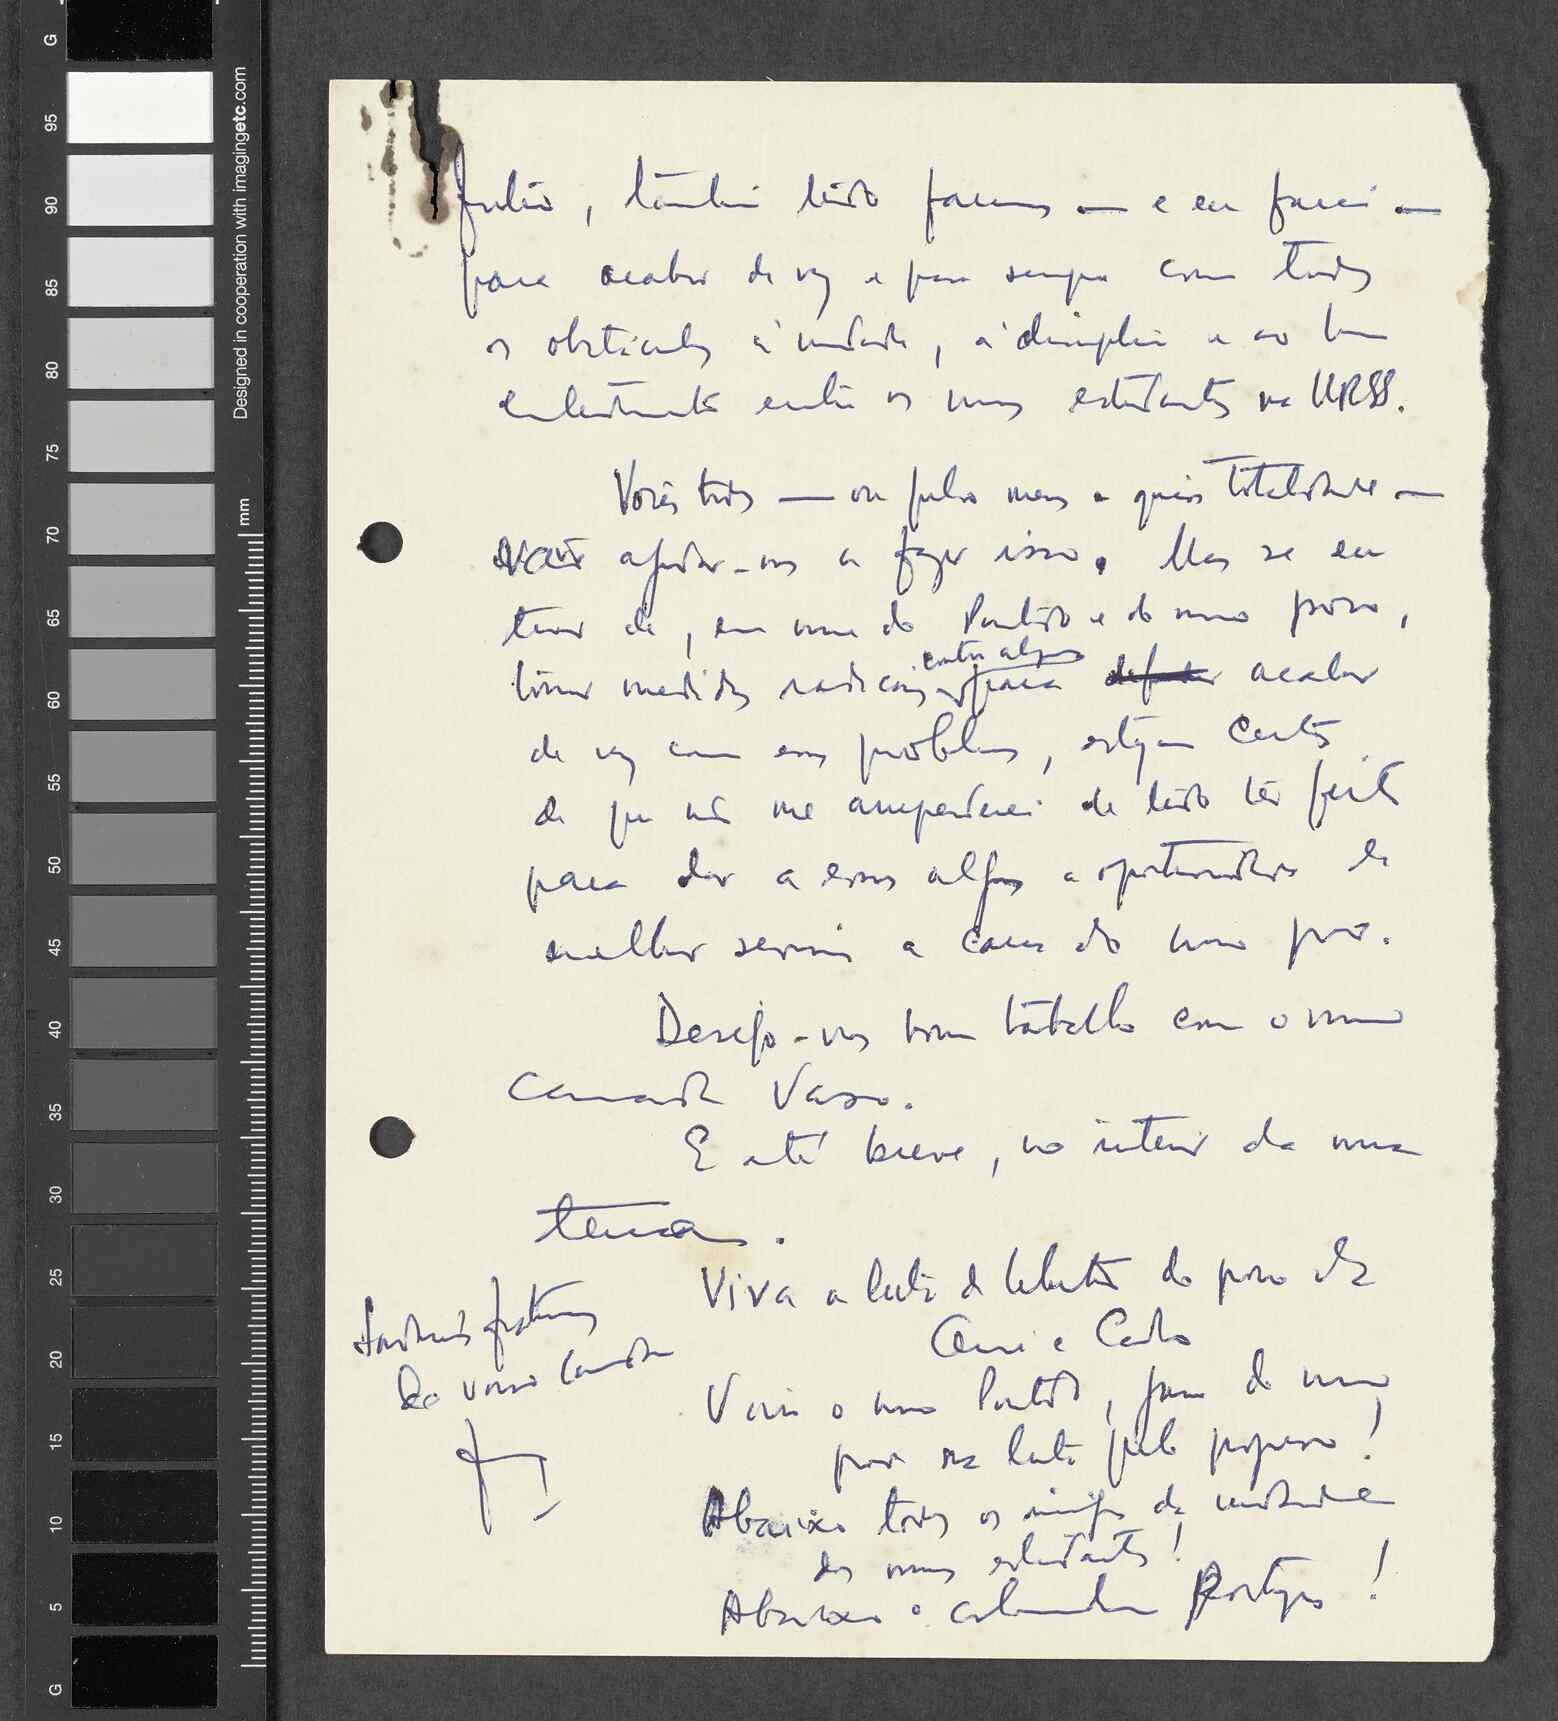 G
95
90
85
80
75
70
65
60
55
50
45
40
35
30
25
20
15
10
5
G
Designed in cooperation with imagingetc.com
mm
, também tudo faremos — e eu farei —
para acabar de vez e para sempre com todos
os obstáculos à unidade, à disciplina e ao bom
entendimento entre os nossos estudantes na URSS.
Vocês todos — ou pelo menos a quasi totalidade —
vão ajudar-nos a fazer isso. Mas se eu
tiver de, em nome do Partido e do nosso povo,
tomar medidas radicais contra alguns para acabar
de vez com esses problemas, estejam certos
de que não me arrependerei de tudo ter feito
para dar a esses alguns a oportunidade de
melhor servir a causa do nosso povo.
Desejo-vos bom trabalho com o nosso
camarada Vasco.
E até breve, no interior da nossa
terra.
Viva a luta de libertação do povo da
Guiné e Cabo
Viva o nosso Partido, força do nosso
povo na luta pelo progresso!
Abaixo todos os inimigos da unidade
dos nossos estudantes!
Abaixo o colonialismo Português!
Saudações fraternas
do vosso camarada